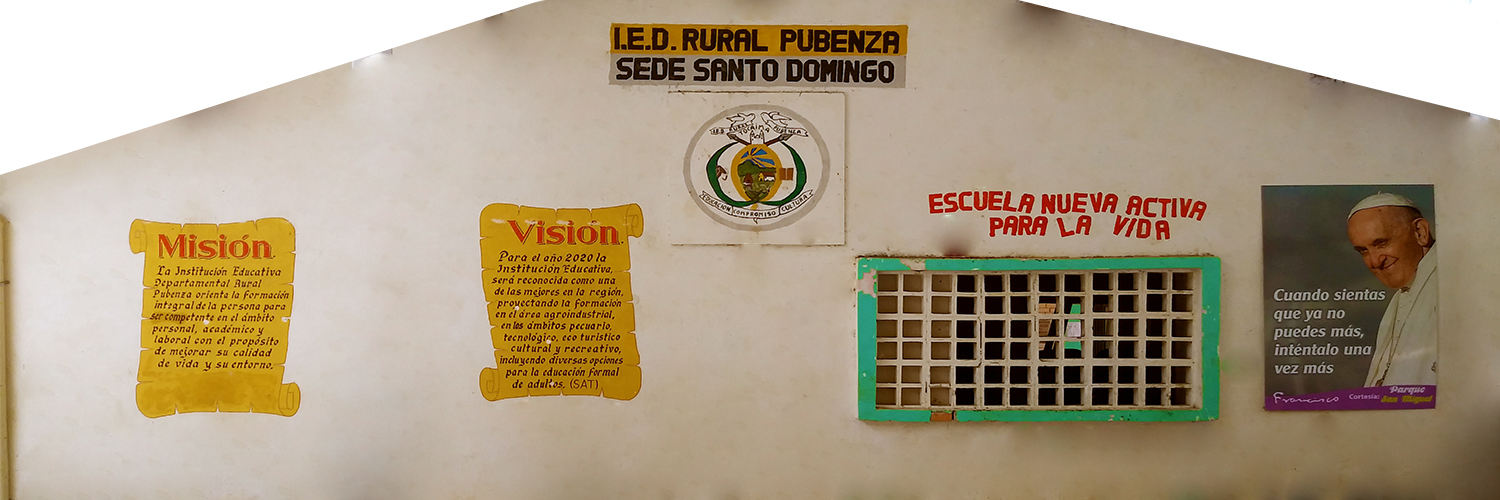 I.E.D. RURAL PUBENZA
SEDE SANTO DOMINGO
I.E.D RURAL PUBENZA
TOCAIMA
EDUCACION COMPROMISO CULTURA
Misión.
La Institución Educativa
Departamental Rural
Pubenza orienta la formación
integral de la persona para
ser competente en el ámbito
personal, académico y
laboral con el propósito
de mejorar su calidad
de vida y su entorno.
Visión.
Para el año 2020 la
Institución Educativa,
será reconocida como una
de las mejores en la región,
proyectando la formación
en el área agroindustrial,
en los ámbitos pecuario,
tecnológico, eco turístico
cultural y recreativo,
incluyendo diversas opciones
para la educación formal
de adultos. (SAT)
ESCUELA NUEVA ACTIVA
PARA LA VIDA
Cuando sientas
que ya no
puedes más,
inténtalo una
vez más
Francisco
Cortesía: Parque
San Miguel